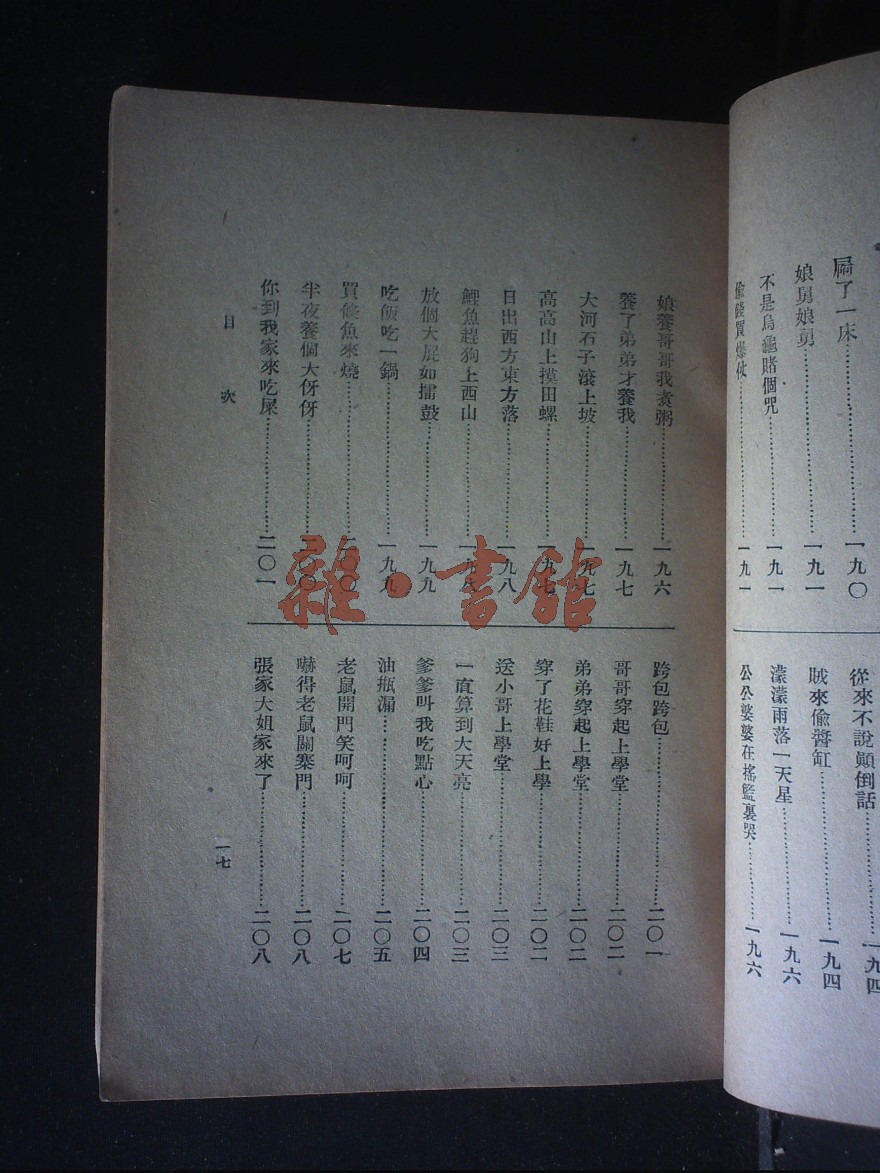 屙了一床……一九〇
娘舅娘舅……一九一
不是烏龜賭個咒……一九一
偷錢買爆仗……一九一
從來不說顛倒話……一九四
賊來偷醬缸……一九四
濛濛雨落一天星……一九六
公公婆婆在搖籃裏哭……一九六
娘養哥哥我煮粥……一九六
養了弟弟才養我……一九七
大河石子滾上坡……一九七
高高山上摸田螺……一九七
日出西方東方落……一九八
鯉魚趕狗上西山……一九八
放個大屁如擂鼓……一九九
吃飯吃一鍋……一九九
買條魚來燒……二〇〇
半夜養個大伢伢……二〇〇
你到我家來吃屎……二〇一
跨包跨包……二〇一
哥哥穿起上學堂……二〇二
弟弟穿起上學堂……二〇二
穿了花鞋好上學……二〇二
送小哥上學堂……二〇三
一直算到大天亮……二〇三
爹爹叫我吃點心……二〇四
油瓶漏……二〇五
老鼠開門笑呵呵……二〇七
嚇得老鼠關寨門……二〇八
張家大姐家來了……二〇八
目次
一七
雜·書館